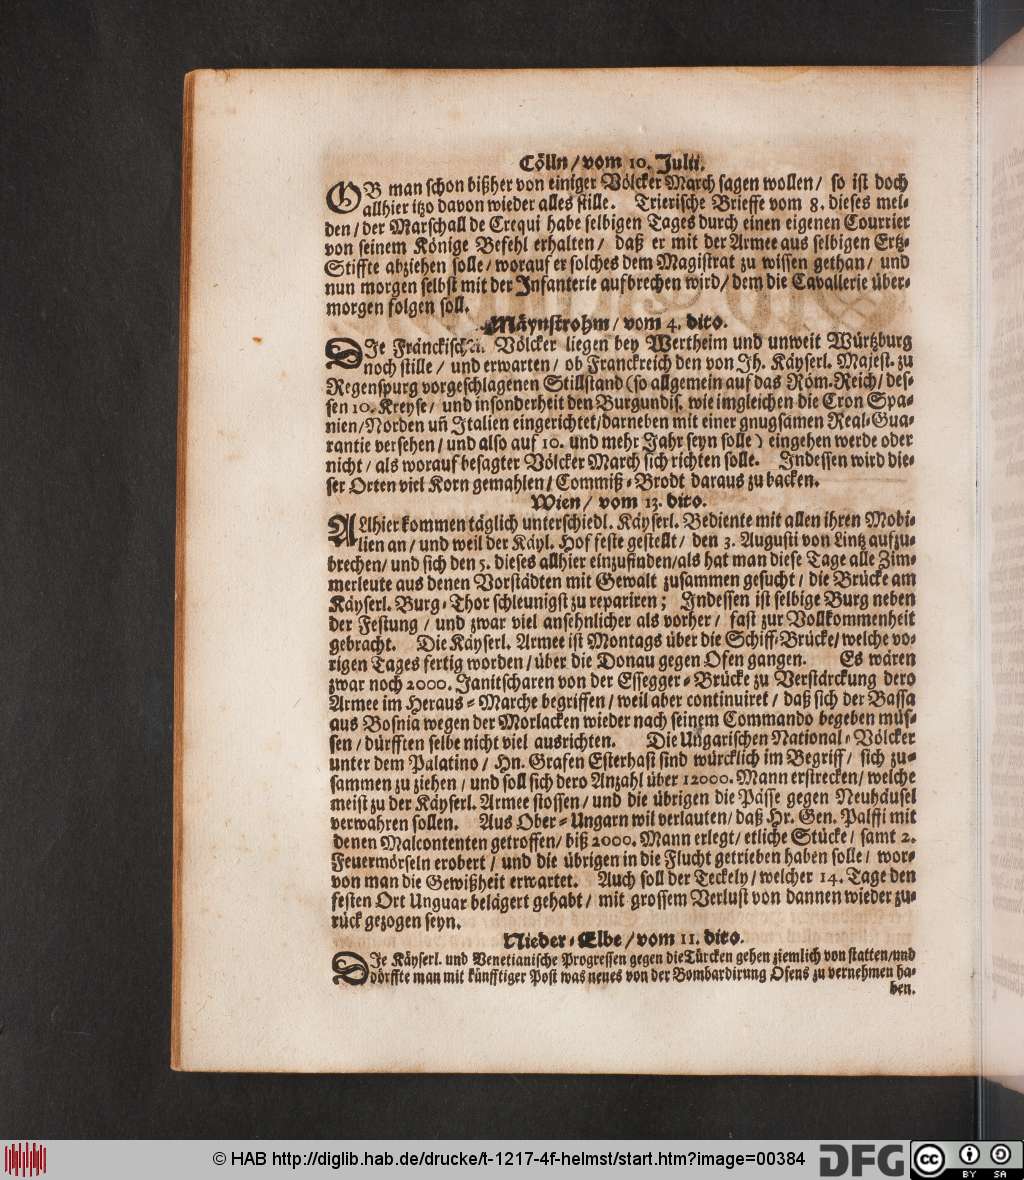 Cölln / vom 10. Julii.
OB man schon bißher von einiger Völcker March sagen wollen / so ist doch
allhier itzo davon wieder alles stille. Trierische Brieffe vom 8. dieses mel-
den / der Marschall de Crequi habe selbigen Tages durch einen eigenen Courrier
von seinem Könige Befehl erhalten / daß er mit der Armee aus selbigen Ertz-
Stiffte abziehen solle / worauf er solches dem Magistrat zu wissen gethan / und
nun morgen selbst mit der Infanterie aufbrechen wird / dem die Cavallerie über-
morgen folgen soll.
Mäynstrohm / vom 4. dito.
DJe Fränckischen Völcker liegen bey Wertheim und unweit Würtzburg
noch stille / und erwarten / ob Franckreich den von Jh. Käyserl. Majest. zu
Regenspurg vorgeschlagenen Stillstand (so allgemein auf das Röm. Reich / des-
sen 10. Kreyse / und insonderheit den Burgundis. wie imgleichen die Cron Spa-
nien / Norden uñ Italien eingerichtet / darneben mit einer gnugsamen Real-Gua-
rantie versehen / und also auf 10. und mehr Jahr seyn solle) eingehen werde oder
nicht / als worauf besagter Völcker March sich richten solle. Jndessen wird die-
ser Orten viel Korn gemahlen / Commiß-Brodt daraus zu backen.
Wien / vom 13. dito.
ALlhier kommen täglich unterschiedl. Käyserl. Bediente mit allen ihren Mobi-
lien an / und weil der Käyl. Hof feste gestellt / den 3. Augusti von Lintz aufzu-
brechen / und sich den 5. dieses allhier einzufinden / als hat man diese Tage alle Zim-
merleute aus denen Vorstädten mit Gewalt zusammen gesucht / die Brücke am
Käyserl. Burg-Thor schleunigst zu repariren; Jndessen ist selbige Burg neben
der Festung / und zwar viel ansehnlicher als vorher / fast zur Vollkommenheit
gebracht. Die Käyserl. Armee ist Montags über die Schiff-Brücke / welche vo-
rigen Tages fertig worden / über die Donau gegen Ofen gangen. Es wären
zwar noch 2000. Janitscharen von der Essegger-Brücke zu Verstärckung dero
Armee im Heraus-Marche begriffen / weil aber continuiret / daß sich der Bassa
aus Bosnia wegen der Morlacken wieder nach seinem Commando begeben müs-
sen / dürfften selbe nicht viel ausrichten. Die Ungarischen National-Völcker
unter dem Palatino / Hn. Grafen Esterhasi sind würcklich im Begriff / sich zu-
sammen zu ziehen / und soll sich dero Anzahl über 12000. Mann erstrecken / welche
meist zu der Käyserl. Armee stossen / und die übrigen die Pässe gegen Neuhäusel
verwahren sollen. Aus Ober-Ungarn wil verlauten / daß Hr. Gen. Palffi mit
denen Malcontenten getroffen / biß 2000. Mann erlegt / etliche Stücke / samt 2.
Feuermörseln erobert / und die übrigen in die Flucht getrieben haben solle / wor-
von man die Gewißheit erwartet. Auch soll der Teckely / welcher 14. Tage den
festen Ort Unguar belägert gehabt / mit grossem Verlust von dannen wieder zu-
rück gezogen seyn.
Nieder-Elbe / vom 11. dito.
DJe Käyserl. und Venetianische Progressen gegen die Türcken gehen ziemlich von statten / und
dörffte man mit künfftiger Post was neues von der Bombardirung Ofens zu vernehmen ha-
ben.
© HAB http://diglib.hab.de/drucke/t-1217-4f-helmst/start.htm?image=00384
DFG
cc BY SA